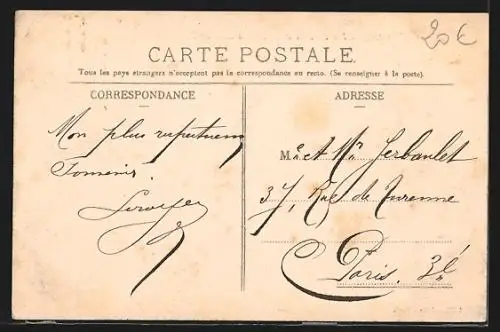 20€
CARTE POSTALE
Tous les pays étrangers n'acceptent pas la correspondance au recto. (Se renseigner à la poste).
CORRESPONDANCE
ADRESSE
Mon plus respectueux
Souvenir.
Me et Mr
37, Rue de Turenne
Paris. 3e